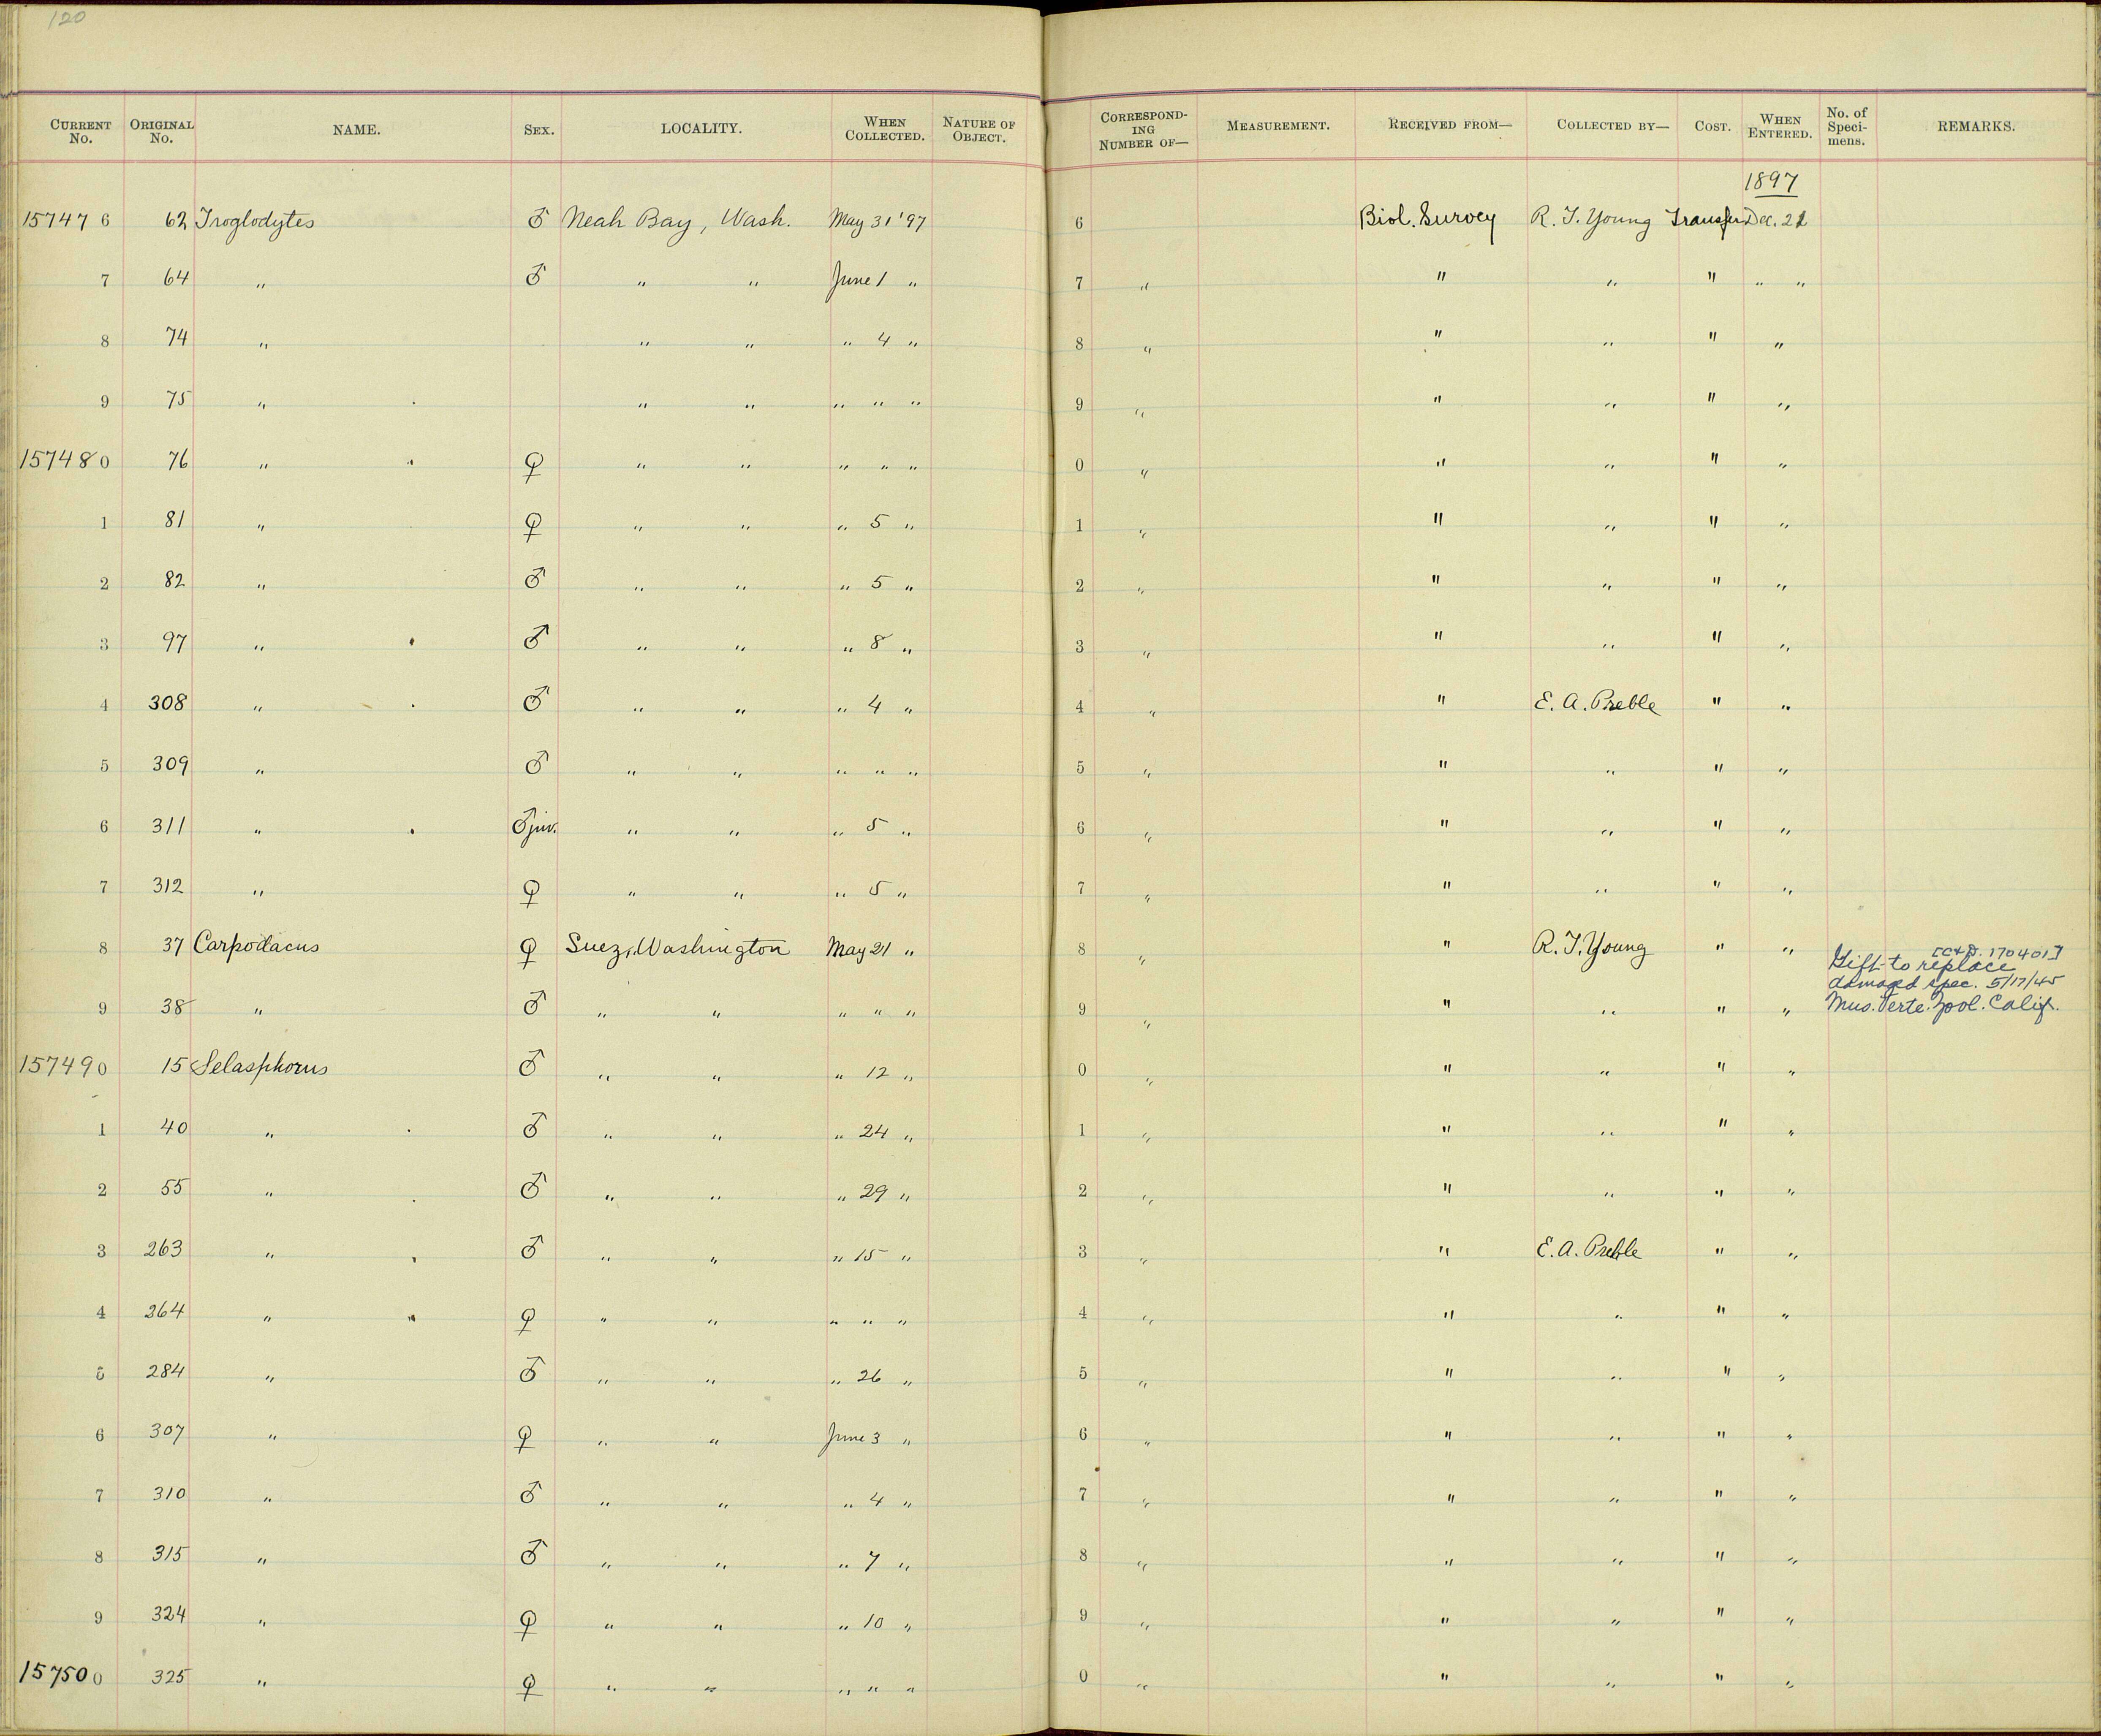 120
CURRENT No. ORIGINAL No. NAME. SEX. LOCALITY. WHEN COLLECTED. NATURE OF OBJECT. CORRESPONDING NUMBER OF— MEASUREMENT. RECEIVED FROM— COLLECTED BY— COST. WHEN ENTERED. No. of Specimens. REMARKS.
1897
157476 62 Troglodytes ♂ Neah Bay, Wash. May 31 '97 6 Biol. Survey R. T. Young Transfer Dec. 21
7 64 " ♂ " " June 1 " 7 " " " " " "
8 74 " " " " 4 " 8 " " " " "
9 75 " " " " " " 9 " " " " "
157480 76 " ♀ " " " " " 0 " " " " "
1 81 " ♀ " " " 5 " 1 " " " " "
2 82 " ♂ " " " 5 " 2 " " " " "
3 97 " ♂ " " " 8 " 3 " " " " "
4 308 " ♂ " " " 4 " 4 " " E. A. Preble " "
5 309 " ♂ " " " " " 5 " " " " "
6 311 " ♂ juv. " " " 5 " 6 " " " " "
7 312 " ♀ " " " 5 " 7 " " " " "
8 37 Carpodacus ♀ Suez, Washington May 21 " 8 " " R. T. Young " " Gift to replace [C&D. 170401]
damaged spec. 5/17/45
9 38 " ♂ " " " " " 9 " " " " " Mus. Verte. Zool. Calif.
157490 15 Selasphorus ♂ " " " 12 " 0 " " " " "
1 40 " ♂ " " " 24 " 1 " " " " "
2 55 " ♂ " " " 29 " 2 " " " " "
3 263 " ♂ " " " 15 " 3 " " E. A. Preble " "
4 264 " ♀ " " " " " 4 " " " " "
5 284 " ♂ " " " 26 " 5 " " " " "
6 307 " ♀ " " June 3 " 6 " " " " "
7 310 " ♂ " " " 4 " 7 " " " " "
8 315 " ♂ " " " 7 " 8 " " " " "
9 324 " ♀ " " " 10 " 9 " " " " "
157500 325 " ♀ " " " " " 0 " " " " "